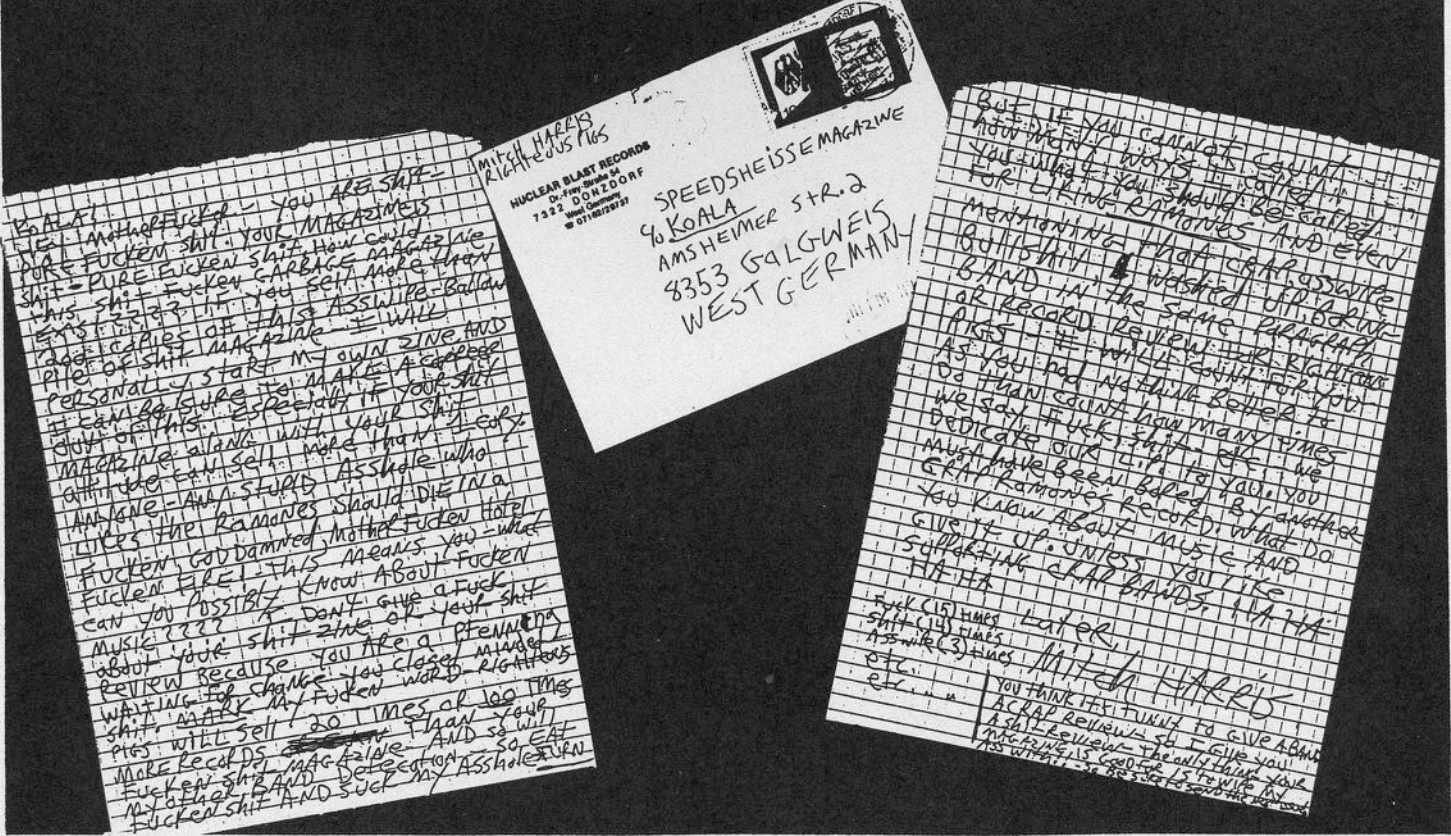 KOALA!
HEY MOTHERFUCKER - YOU ARE SHIT-
PURE FUCKEN SHIT. YOUR MAGAZINE IS
SHIT - PURE FUCKEN SHIT. HOW COULD
THIS SHIT FUCKEN GARBAGE MAGAZINE
EXIST???? IF YOU SELL MORE THAN
200 COPIES OF THIS ASSWIPE-
PILE OF SHIT MAGAZINE - I WILL
PERSONALLY START MY OWN ZINE AND
I CAN BE SURE TO MAKE A CAREER
OUT OF THIS. ESPECIALLY IF YOUR SHIT
MAGAZINE ALONG WITH YOUR SHIT
ATTITUDE CAN SELL MORE THAN 1 COPY.
ANYONE - ANY STUPID ASSHOLE WHO
LIKES THE RAMONES SHOULD DIE IN A
FUCKEN, GODDAMNED, MOTHERFUCKEN HOTEL
FUCKEN FIRE! THIS MEANS YOU - WHAT
CAN YOU POSSIBLY KNOW ABOUT FUCKEN
MUSIC???? I DONT GIVE A FUCK
ABOUT YOUR SHIT ZINE OR YOUR SHIT
REVIEW BECAUSE YOU ARE A PFENNING
WAITING FOR CHANGE YOU CLOSE MINDED
SHIT. MARK MY FUCKEN WORD - RIGHTEOUS
PIGS WILL SELL 20 TIMES OR 100 TIMES
MORE RECORDS THAN YOUR
FUCKEN SHIT MAGAZINE AND SO WILL
MY OTHER BAND DEFECATION - SO EAT
FUCKEN SHIT AND SUCK MY ASSHOLE TURN
MITCH HARRIS
RIGHTEOUS PIGS
NUCLEAR BLAST RECORDS
Dr.-Frey-Straße 54
7322 DONZDORF
West Germany
☎ 07162/29737
SPEEDSHEISSE MAGAZINE
c/o KOALA
AMSHEIMER STR. 2
8353 GALGWEIS
WEST GERMANY
BUT IF YOU CANNOT COUNT
HOW MANY WORDS I CALLED
YOU - WHAT YOU SHOULD BE CALLED
FOR LIKING RAMONES AND EVEN
MENTIONING THAT CRAP ASSWIPE
BULLSHIT WASHED UP, BORING
BAND IN THE SAME PARAGRAPH
OR RECORD REVIEW FOR RIGHTEOUS
PIGS I WILL COUNT FOR YOU.
AS YOU HAD NOTHING BETTER TO
DO THAN COUNT HOW MANY TIMES
WE SAY FUCK, SHIT - ETC. WE
DEDICATE OUR L.P. TO YOU. YOU
MUST HAVE BEEN BORED BY ANOTHER
CRAP RAMONES RECORD. WHAT DO
YOU KNOW ABOUT MUSIC AND
GIVE IT UP. UNLESS YOU LIKE
SUPPORTING CRAP BANDS. HA HA
HA HA
LATER
FUCK (15) TIMES
SHIT (14) TIMES
ASSWIPE (3) TIMES
ETC.
ETC....
MITCH HARRIS
YOU THINK ITS FUNNY TO GIVE A BAND
A CRAP REVIEW - SO I GIVE YOU
A SHIT REVIEW - THE ONLY THING YOUR
MAGAZINE IS GOOD FOR IS TO WIPE MY
ASS WITH! SO BE SURE TO SEND THE